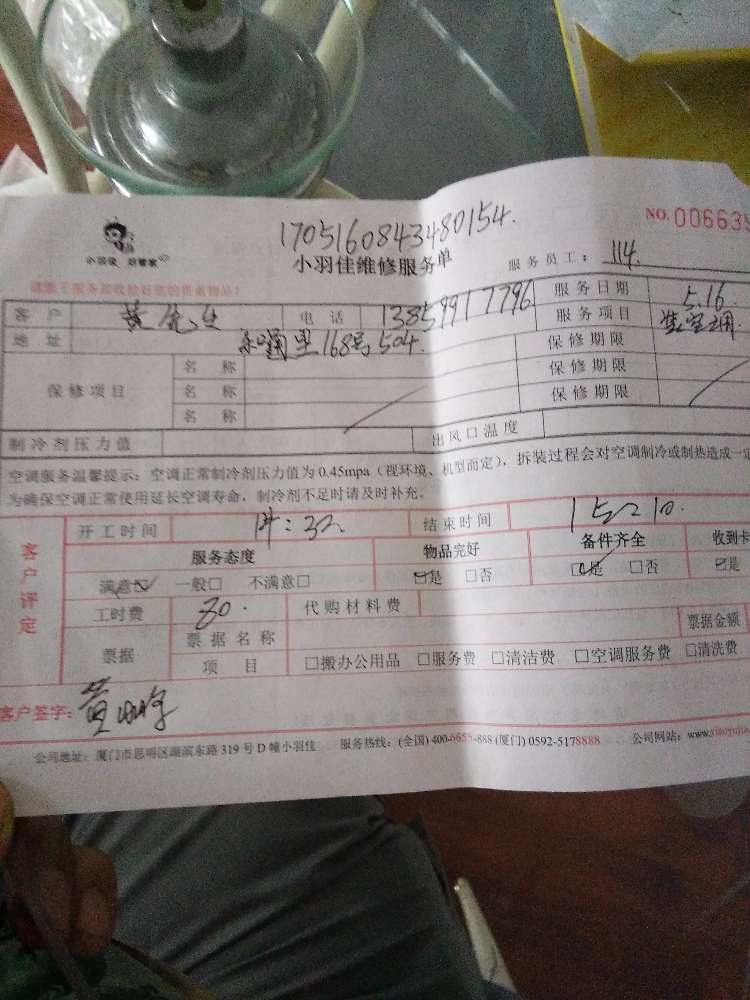 1705160843480154.
NO. 006639
小羽佳 好管家
小羽佳维修服务单
服务员工: 114.
请您于服务前收拾好您的贵重物品!
客户 黄先生 电话 13859917796 服务日期 5.16
地址 168号504. 服务项目
保修期限
保修项目 名称 保修期限
名称 保修期限
名称
制冷剂压力值 出风口温度
空调服务温馨提示: 空调正常制冷剂压力值为 0.45mpa (视环境、机型而定), 拆装过程会对空调制冷或制热造成一定
为确保空调正常使用延长空调寿命, 制冷剂不足时请及时补充。
客户评定
开工时间 14:32 结束时间
服务态度 物品完好 备件齐全 收到卡
满意☑ 一般□ 不满意□ ☑是 □否 ☑是 □否 ☑是
工时费 80. 代购材料费
票据 票据名称 票据金额
项目 □搬办公用品 □服务费 □清洁费 □空调服务费 □清洗费
客户签字: 黄
公司地址: 厦门市思明区湖滨东路 319 号 D 幢小羽佳 服务热线: (全国) 400-6655-888 (厦门) 0592-5178888 公司网站: www.xiaoyujia